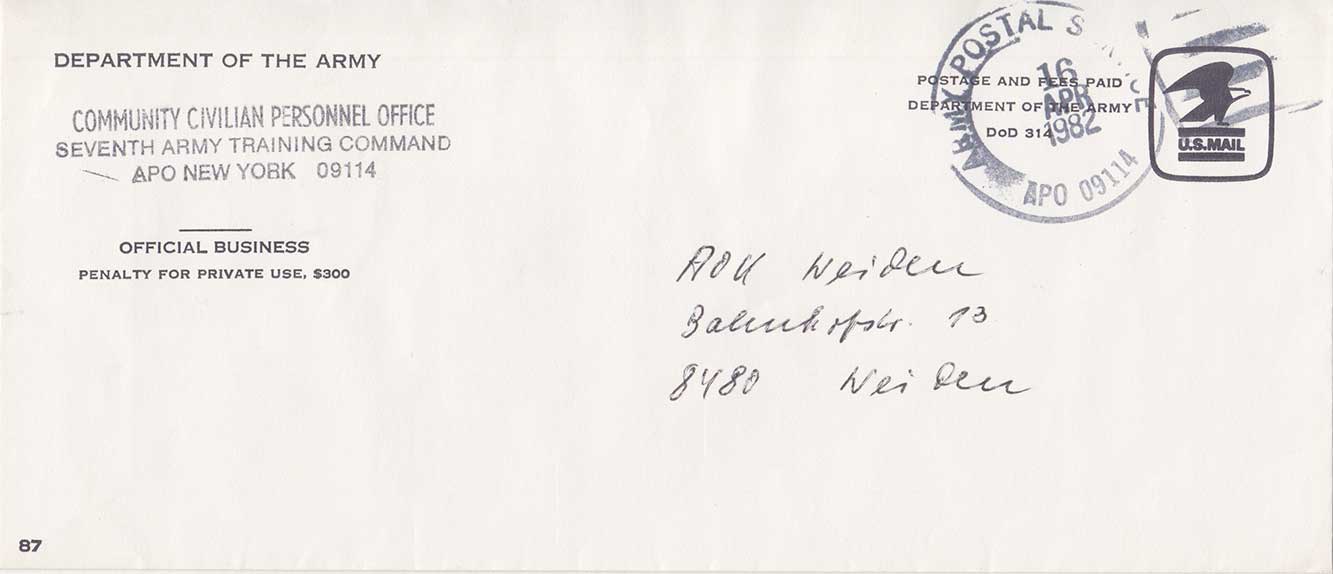 DEPARTMENT OF THE ARMY
COMMUNITY CIVILIAN PERSONNEL OFFICE
SEVENTH ARMY TRAINING COMMAND
APO NEW YORK 09114
OFFICIAL BUSINESS
PENALTY FOR PRIVATE USE, $300
ARMY POSTAL SERVICE
16
APR
1982
APO 09114
POSTAGE AND FEES PAID
DEPARTMENT OF THE ARMY
DoD 314
U.S.MAIL
AOK Weiden
Bahnhofstr. 13
8480 Weiden
87